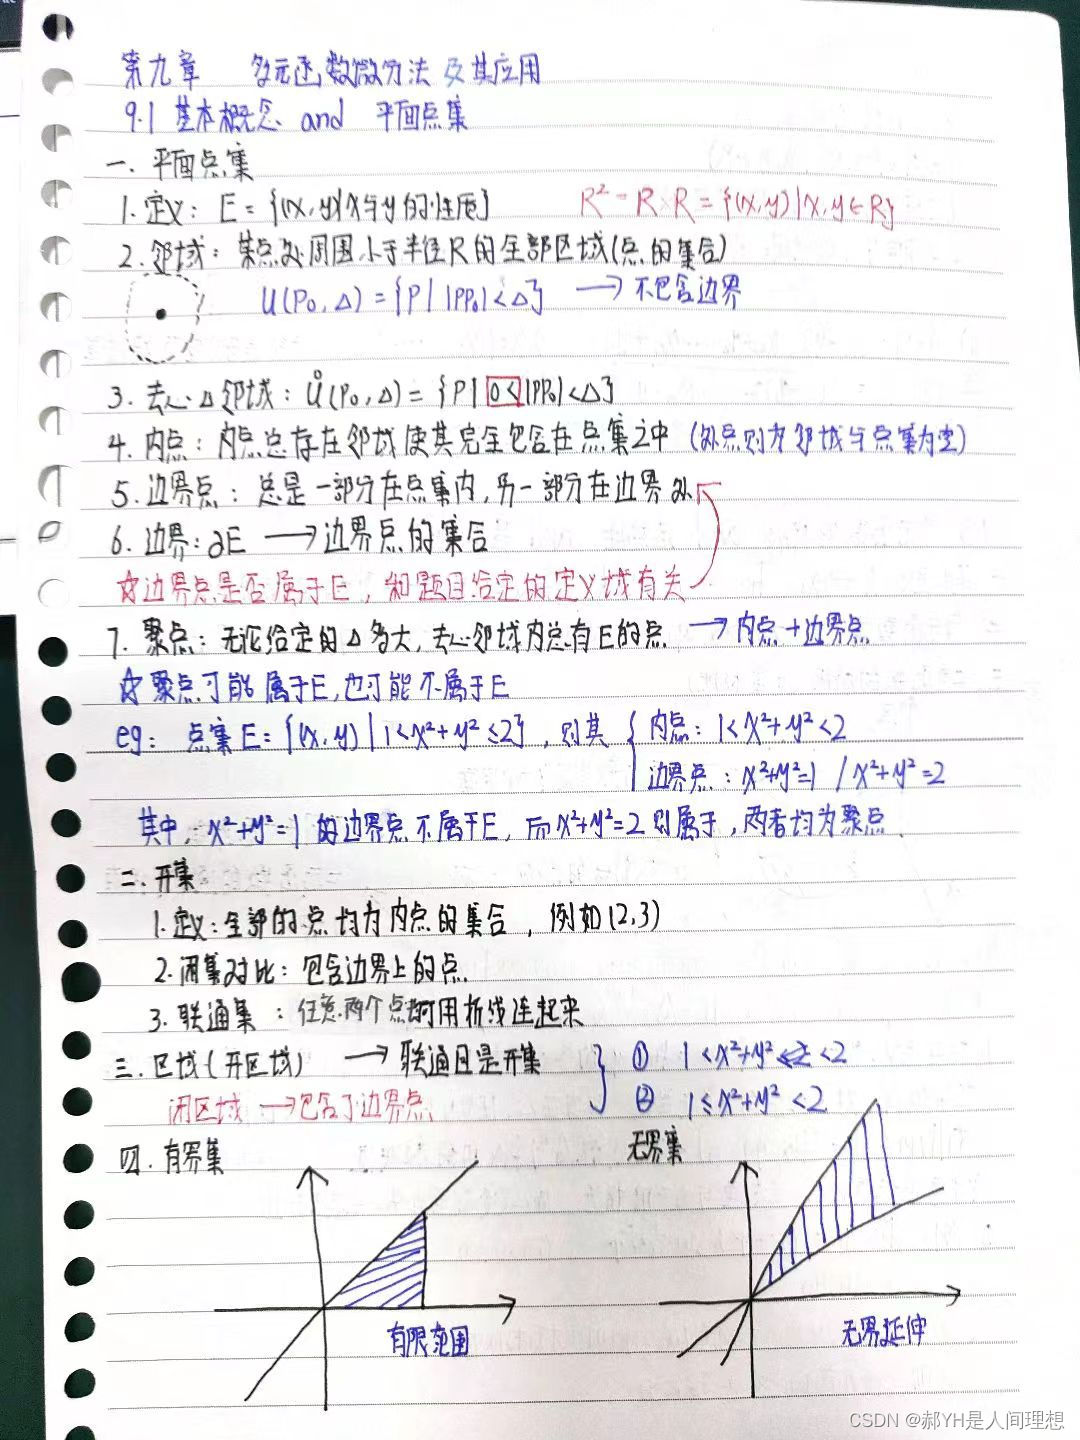 第九章 多元函数微分法及其应用
9.1 基本概念 and 平面点集
一. 平面点集
1. 定义: E = {(x,y)|x与y的性质} R² = R×R = {(x,y)|x,y∈R}
2. 邻域: 某点处周围小于半径R的全部区域(点的集合)
U(P₀,Δ) = {P| |PP₀|<Δ} → 不包含边界
3. 去心Δ邻域: Ů(P₀,Δ) = {P| 0<|PP₀|<Δ}
4. 内点: 内点总存在邻域使其完全包含在点集之中 (外点则为邻域与点集为空)
5. 边界点: 总是一部分在点集内,另一部分在边界外
6. 边界: ∂E → 边界点的集合
☆边界点是否属于E, 和题目给定的定义域有关
7. 聚点: 无论给定的Δ多大, 去心邻域内总有E的点. → 内点+边界点
☆聚点可能属于E,也可能不属于E
eg: 点集E={(x,y)|1<x²+y²≤2}, 则其 { 内点: 1<x²+y²<2
边界点: x²+y²=1 / x²+y²=2
其中, x²+y²=1 的边界点不属于E, 而x²+y²=2则属于, 两者均为聚点.
二. 开集
1. 定义: 全部的点均为内点的集合, 例如(2,3)
2. 闭集对比: 包含边界上的点.
3. 联通集: 任意两个点都可用折线连起来
三. 区域(开区域) → 联通且是开集 } ① 1<x²+y²<2
闭区域 → 包含了边界点 ② 1≤x²+y²<2
四. 有界集 无界集
有限范围 无界延伸
CSDN @郝YH是人间理想